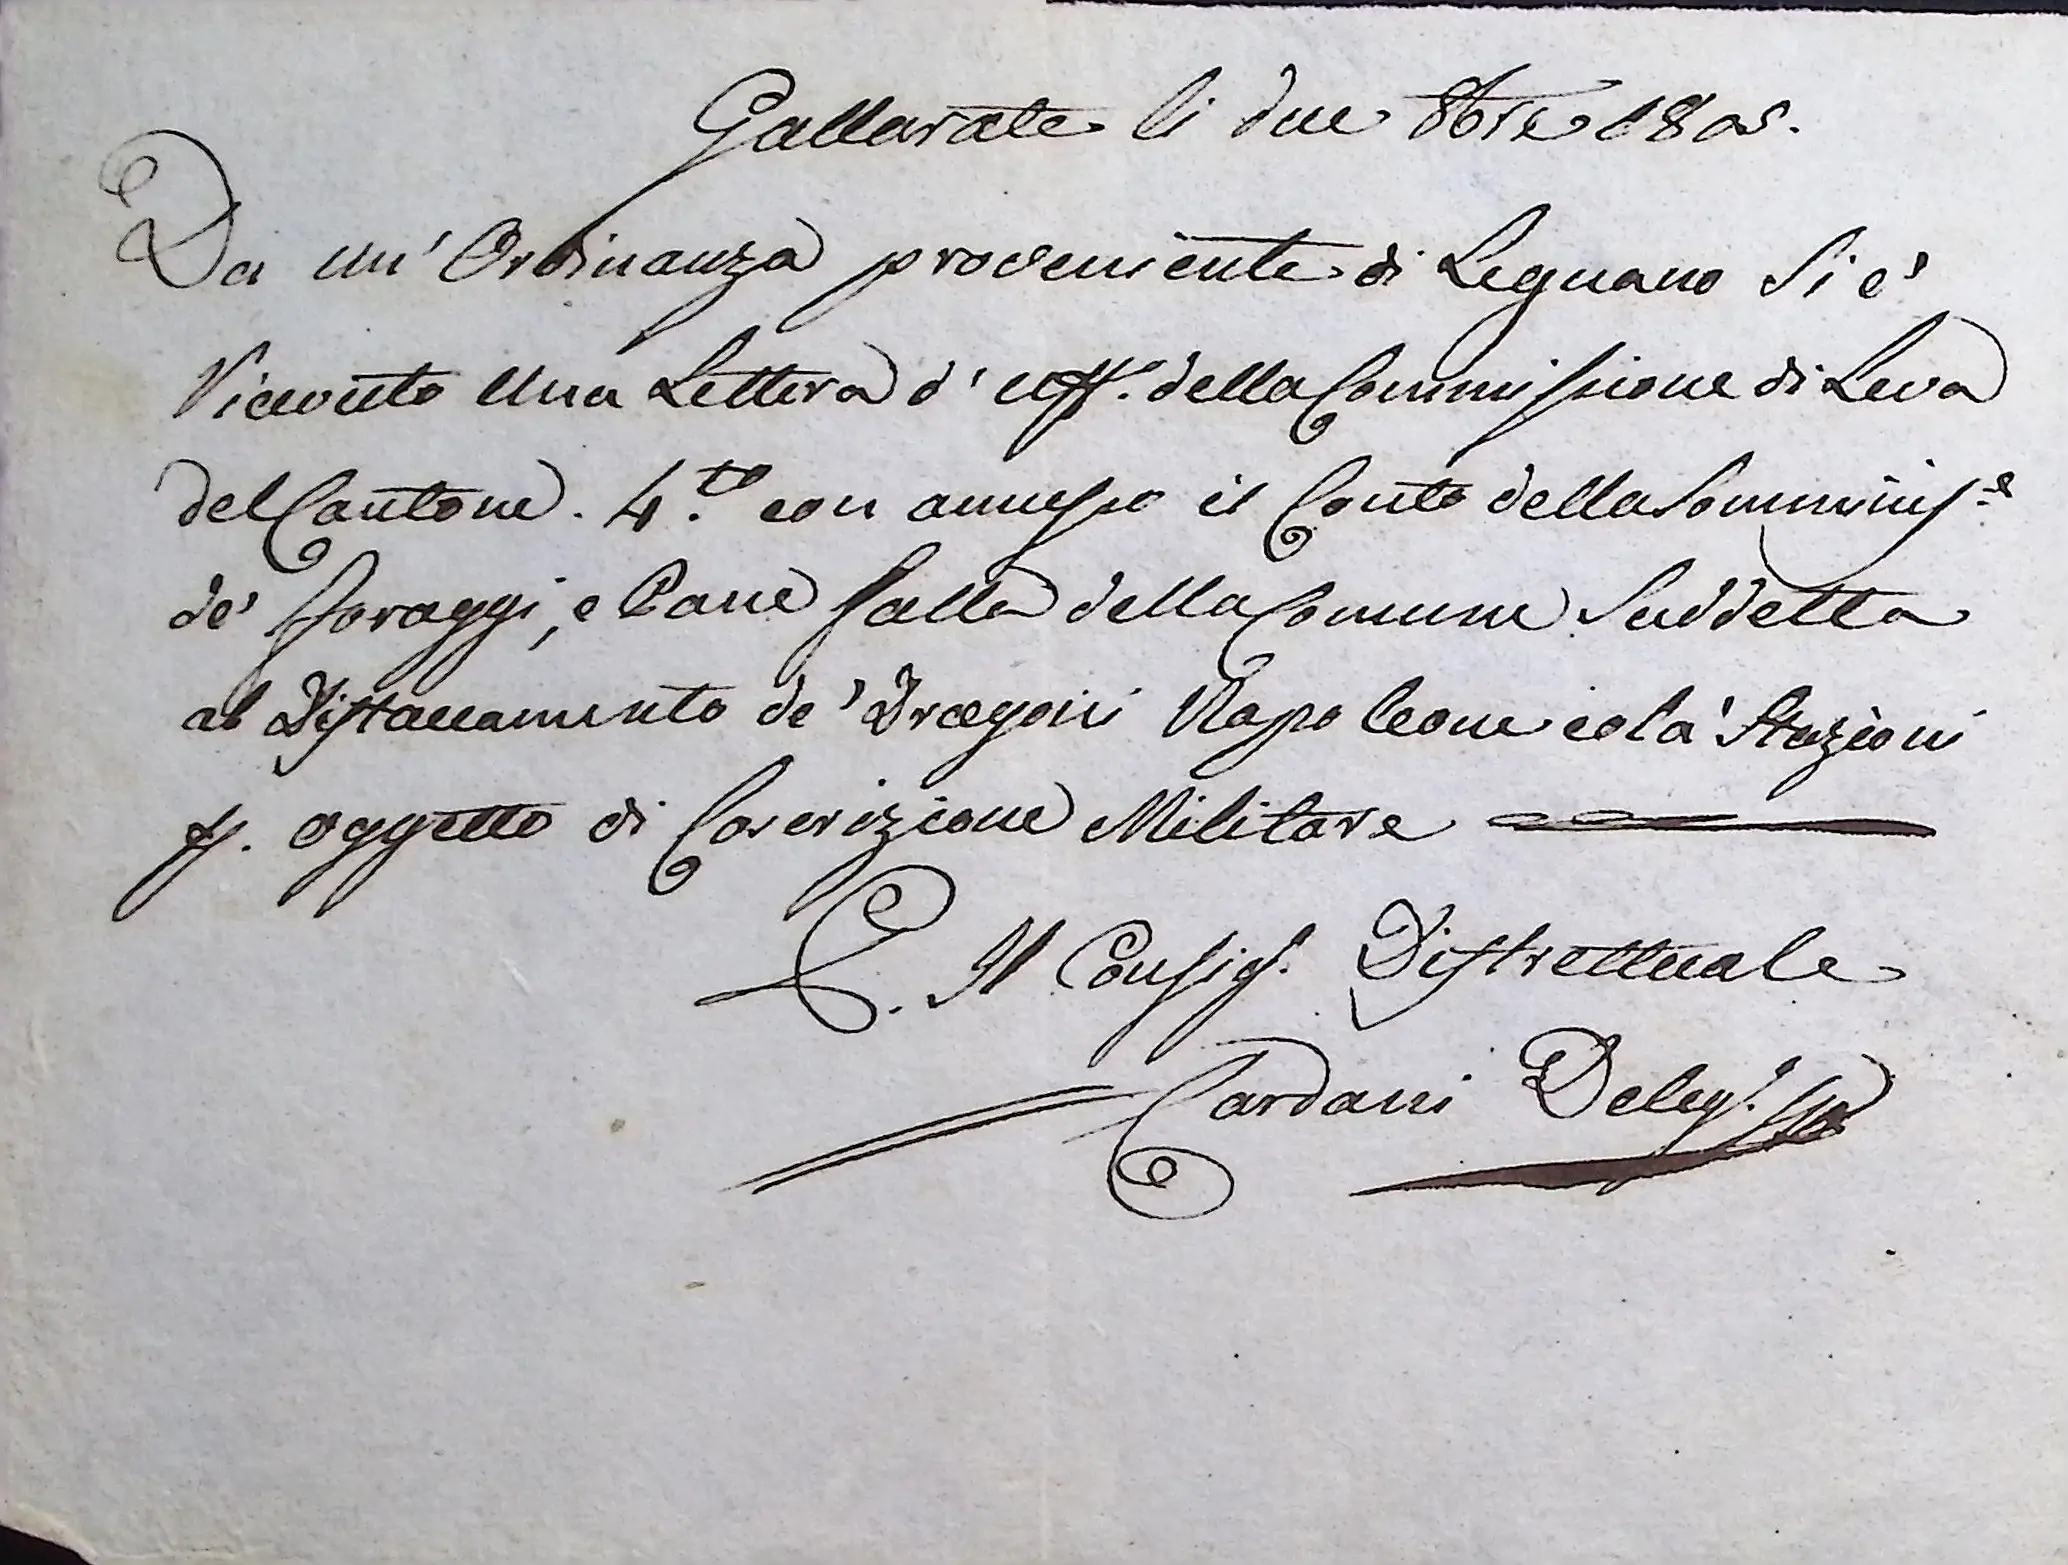 Gallarate li due 8bre 1805.
Da un' Ordinanza proveniente di Legnano si è
Ricevuto una Lettera d' uff.° della Commissione di Leva
del Cantone. 4.to con annesso il Conto della Somminis.e
de' foraggi, e Pane fatta della Comune Suddetta
al Distaccamento de' Dragoni Napoleone colà Stazioni
p. oggetto di Coscrizione Militare
P. Il Consig. Distrettuale
Cardani Deleg.